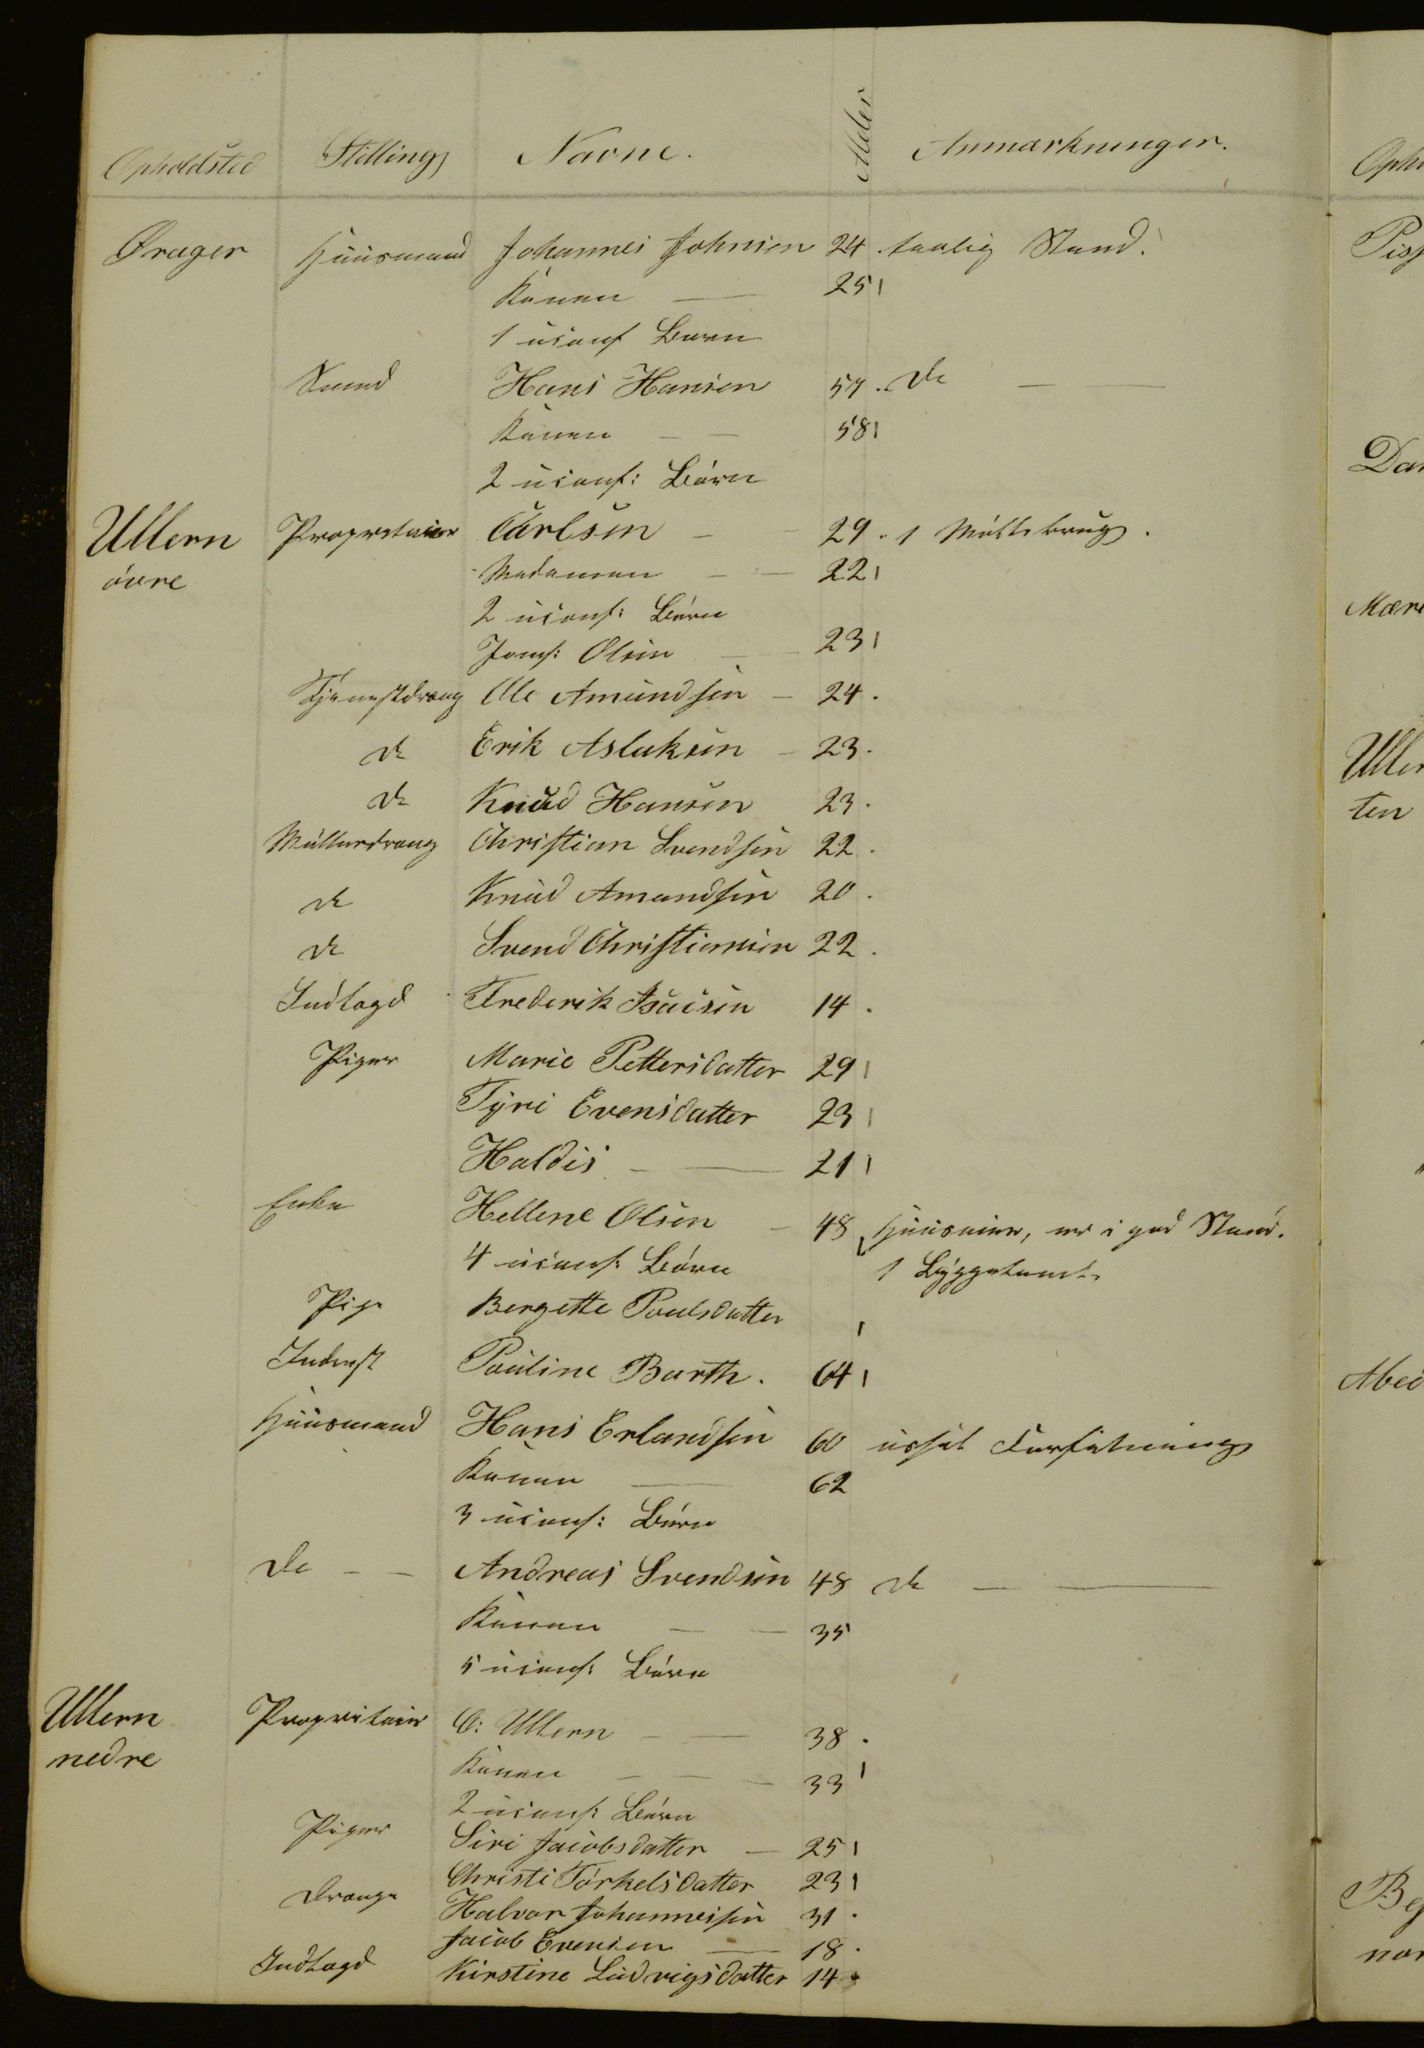 Opholdsted Stilling Navne. Alder Anmærkninger.
Ørager Huusmand Johannes Johnsen 24. taalig Stand.
Konen — 25
1 uconf Barn
Svend Hans Hansen 57. do — —
Konen — — 58
2 uconf: Børn
Ullern Propretair Carlsen — — 29. 1 Møllebrug.
øvre Madamen — — 22
2 uconf: Børn
Jomf: Olsen — — 23
Tjenestdreng Ole Amundsen — 24.
do Erik Aslaksen — 23.
do Knud Hansen 23.
Müllerdreng Christian Svendsen 22.
do Knud Amundsen 20.
do Svend Christiansen 22.
Indtagd Frederik Isacsen 14.
Piger Marie Pettersdatter 29
Tyri Evensdatter 23
Haldis — — 21
Enke Hellene Olsen — 48 Huusene, er i god Stand.
4 uconf: Børn 1 Byggetomt
Pige Bergette Poulsdatter
Inderst Pauline Barth. 64
Huusmand Hans Erlandsen 60 ussel Forfatning
Konen — 62
3 uconf: Børn
do — — Andreas Svendsen 48 do — —
Konen — — 35
5 uconf: Børn
Ullern Propritair O: Ullern — — 38.
nedre Konen — — — 33
2 uconf: Børn
Piger Siri Jacobsdatter — 25
Christi Torkelsdatter 23
Drenge Halvor Johannesen 31.
Jacob Evensen — 18.
Indtagd Kirstine Ludvigsdatter 14.
Opho
Pisj
Dan
Mære
Uller
ten
Abed
Bej
nor